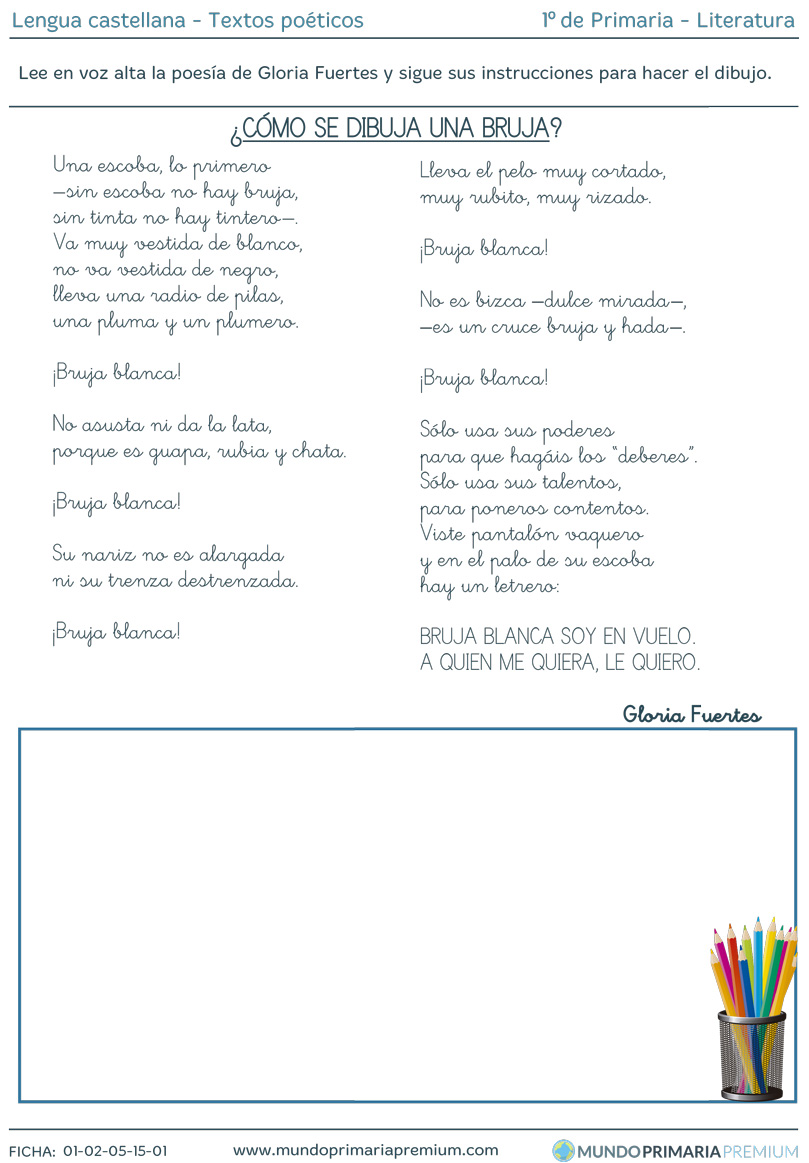 Lengua castellana - Textos poéticos
1º de Primaria - Literatura
Lee en voz alta la poesía de Gloria Fuertes y sigue sus instrucciones para hacer el dibujo.
¿CÓMO SE DIBUJA UNA BRUJA?
Una escoba, lo primero
—sin escoba no hay bruja,
sin tinta no hay tintero—.
Va muy vestida de blanco,
no va vestida de negro,
lleva una radio de pilas,
una pluma y un plumero.
¡Bruja blanca!
No asusta ni da la lata,
porque es guapa, rubia y chata.
¡Bruja blanca!
Su nariz no es alargada
ni su trenza destrenzada.
¡Bruja blanca!
Lleva el pelo muy cortado,
muy rubito, muy rizado.
¡Bruja blanca!
No es bizca —dulce mirada—,
—es un cruce bruja y hada—.
¡Bruja blanca!
Sólo usa sus poderes
para que hagáis los “deberes”.
Sólo usa sus talentos,
para poneros contentos.
Viste pantalón vaquero
y en el palo de su escoba
hay un letrero:
BRUJA BLANCA SOY EN VUELO.
A QUIEN ME QUIERA, LE QUIERO.
Gloria Fuertes
FICHA: 01-02-05-15-01
www.mundoprimariapremium.com
MUNDOPRIMARIAPREMIUM